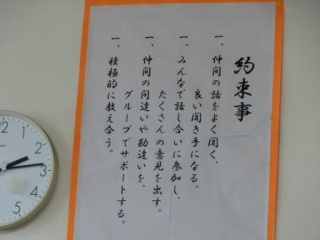 約束事
一、仲間の話をよく聞く、
良い聞き手になる。
一、みんなで話し合いに参加し、
たくさんの意見を出す。
一、仲間の間違いや勘違いを、
グループでサポートする。
一、積極的に教え合う。
12
1
2
3
4
5
6